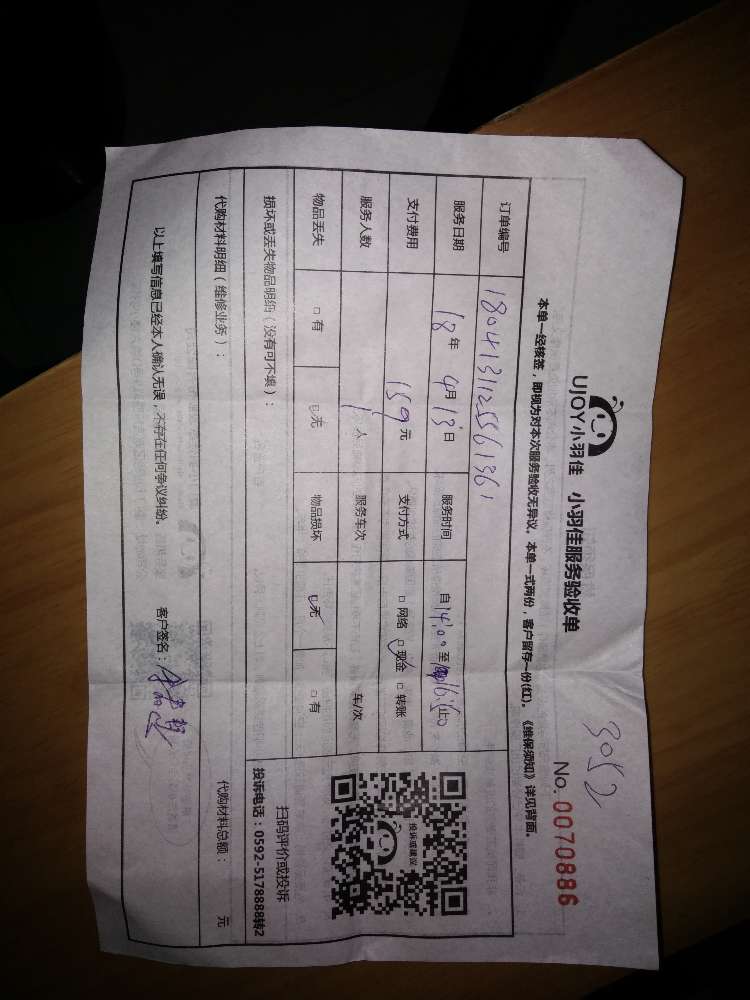 3052
UJOY小羽佳 小羽佳服务验收单 No. 0070886
本单一经核签，即视为对本次服务验收无异议。本单一式两份，客户留存一份(红)。《维保须知》详见背面。
订单编号
服务日期 18年 4月 13日 服务时间 自14:00至16:00止
支付费用 159元 支付方式 □网络 □现金 □转账
服务人数 1人 服务车次 车/次
物品丢失 □有 □无 物品损坏 □无 □有
损坏或丢失物品明细（没有可不填）：
投诉或建议
扫码评价或投诉
投诉电话：0592-5178888转2
代购材料明细（维修业务）： 代购材料总额： 元
以上填写信息已经本人确认无误，不存在任何争议纠纷。 客户签名：